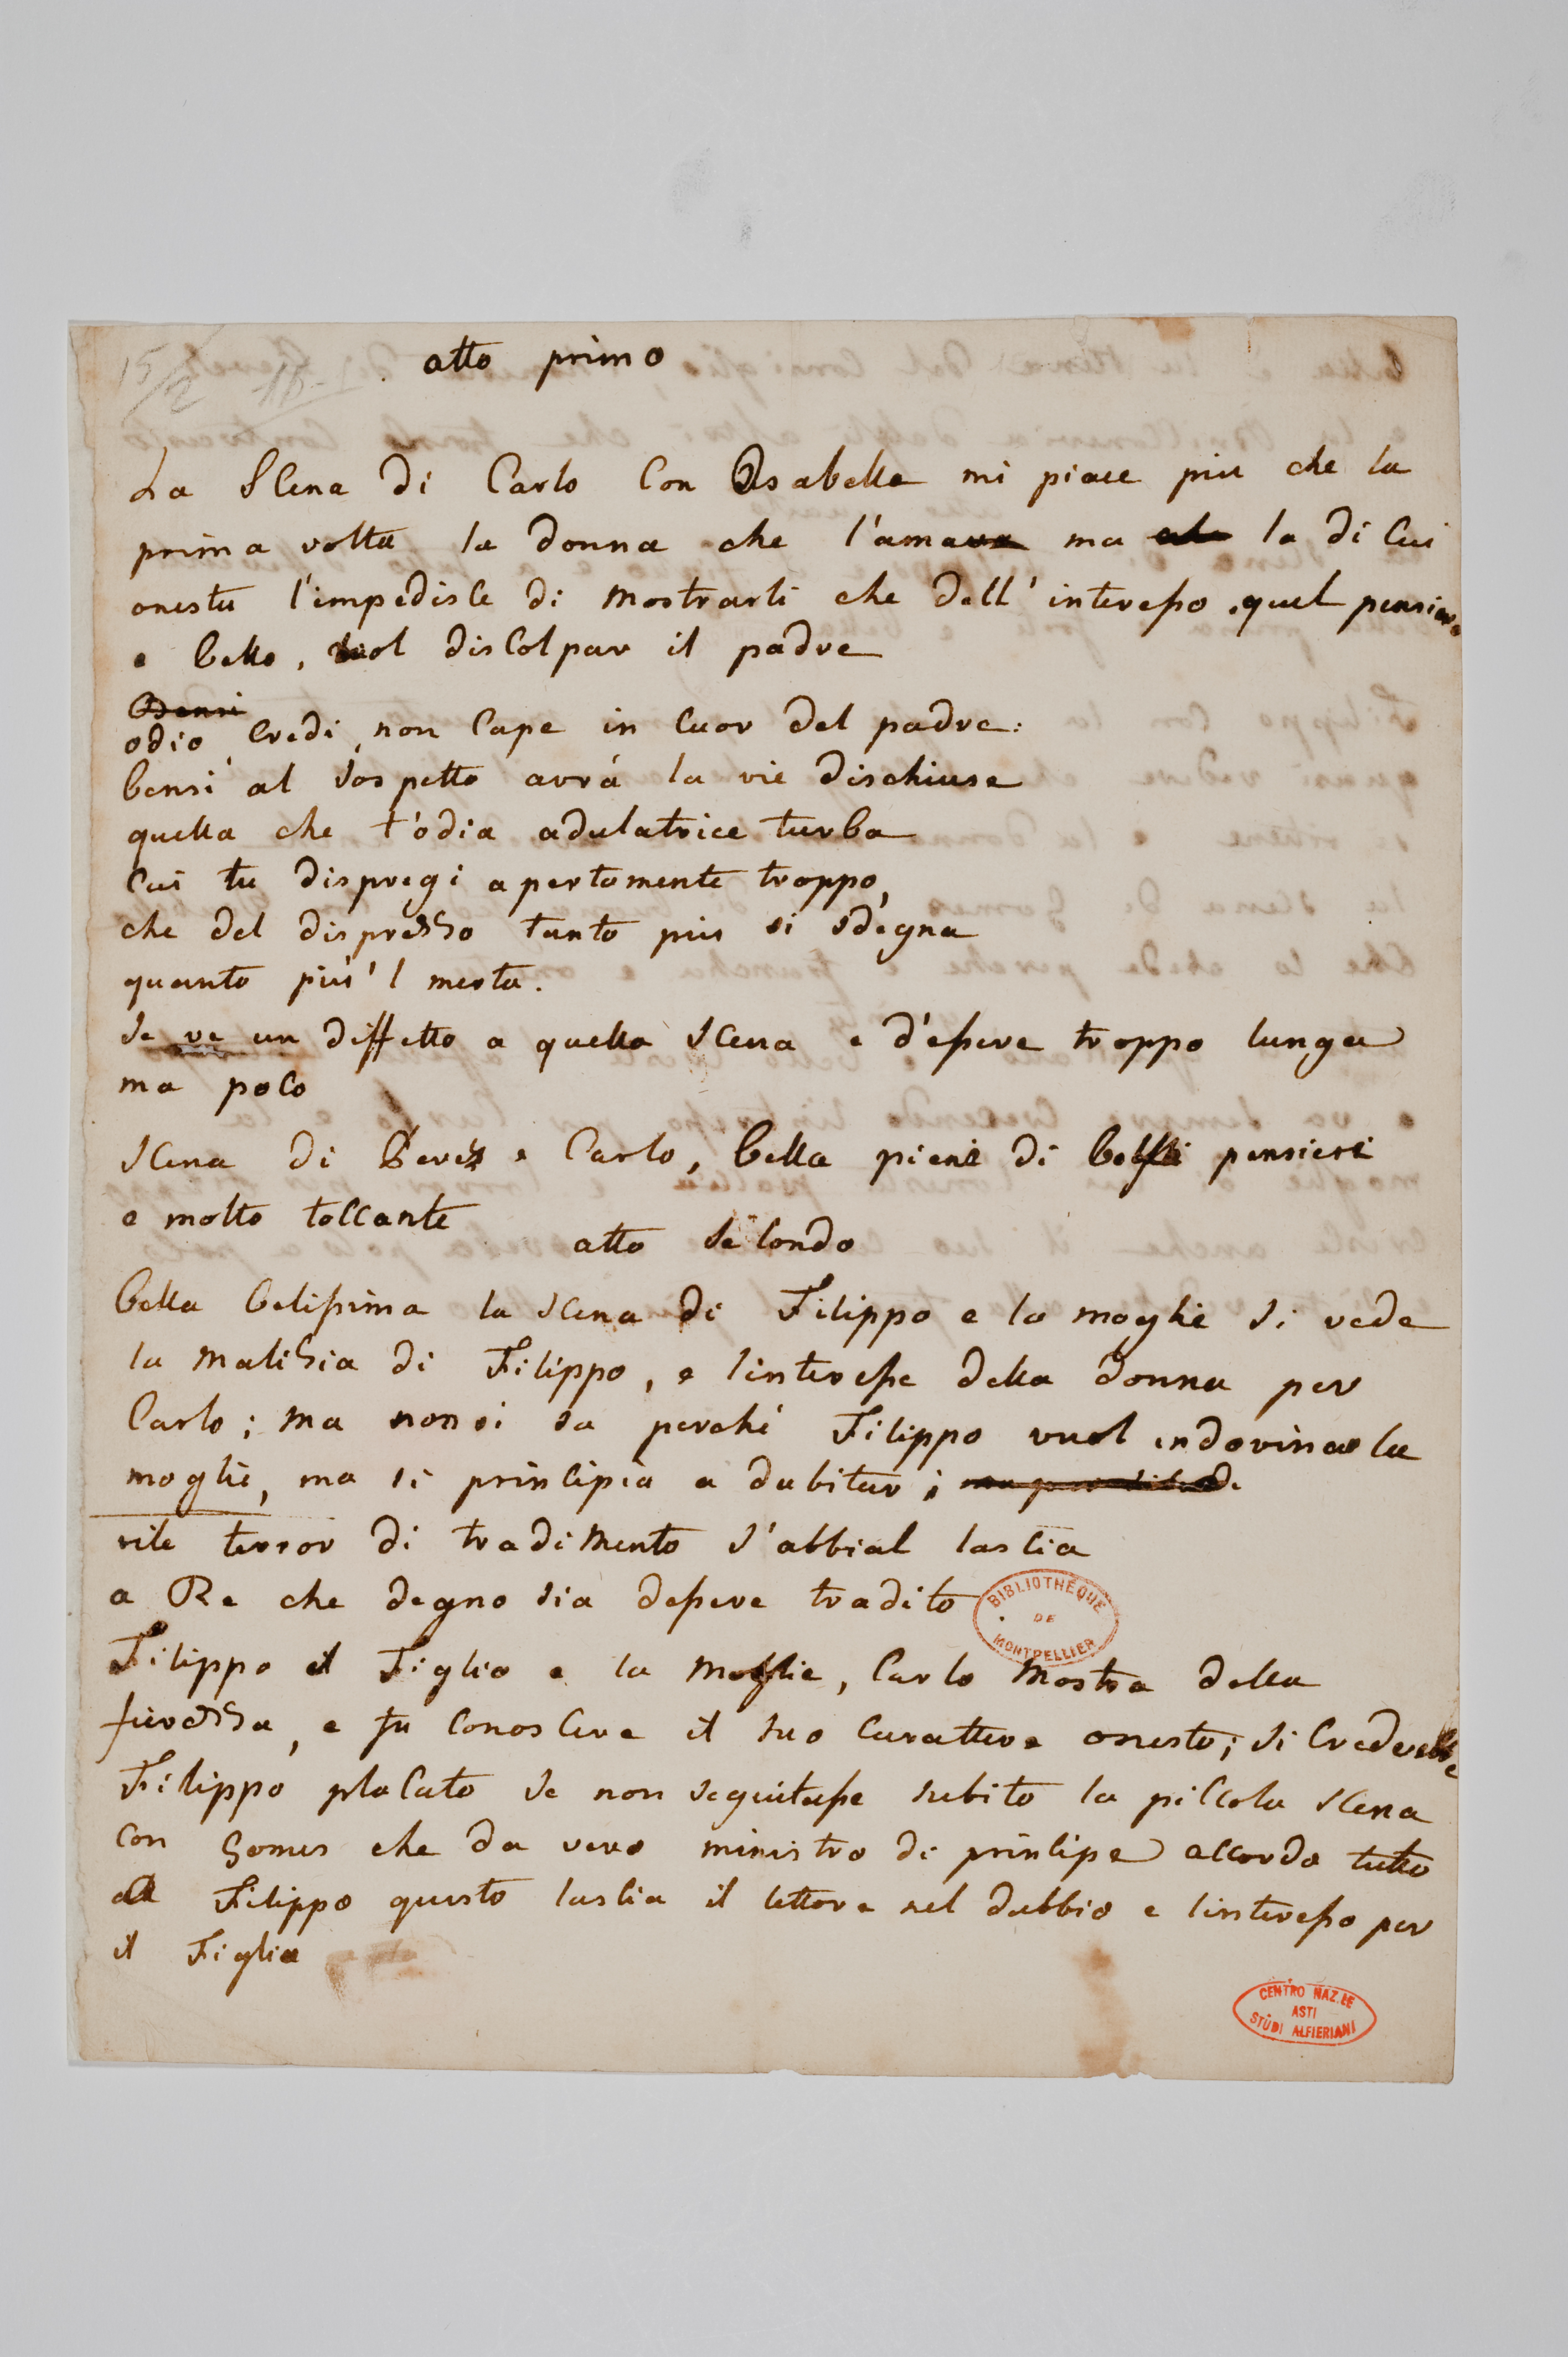 15/2
atto primo
La Scena di Carlo con Isabella mi piace piu che la
prima volta la donna che l'ama ma la di cui
onesta l'impedisce di mostrarli che dell' interesso, quel pensiero
e bello, vuol discolpar il padre
Bensi
odio, credi, non cape in cuor del padre:
bensi al sospetto avrá la vie dischiuse
quella che t'odia adulatrice turba
cui tu dispregi apertamente troppo,
che del disprezzo tanto piu si sdegna
quanto piú 'l merta.
se ve un diffetto a quella scena e d'essere troppo lunga
ma poco
scena di Perez e Carlo, bella piena di belli pensieri
e molto toccante
atto secondo
bella belissima la scena di Filippo e la moglie si vede
la malizia di Filippo, e l'interesse della donna per
Carlo; ma non si sa perché Filippo vuol indovinar la
moglie, ma si principia a dubitar;
vile terror di tradimento s'abbial lascia
a Re che degno sia dessere tradito
Filippo il Figlio e la Moglie, Carlo mostra della
fierezza, e fa conoscere il suo carattere onesto; si crederebbe
Filippo placato se non seguitasse subito la piccola scena
con Gomes che da vero ministro di principe accorda tutto
a Filippo questo lascia il lettore nel dubbio e l'interesso per
il Figlio
BIBLIOTHÈQUE
DE
MONTPELLIER
CENTRO NAZ.LE
ASTI
STUDI ALFIERIANI